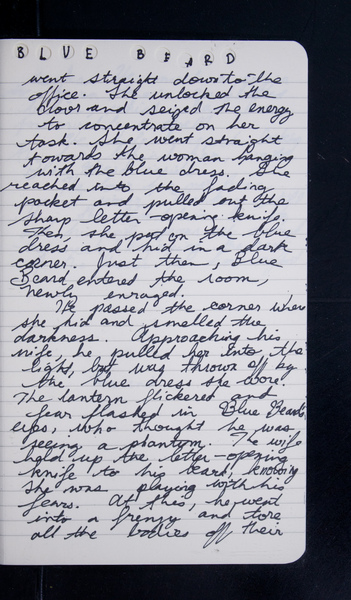 BLUE BEARD
went straight down to the
office. She unlocked the
door and seized the energy
to concentrate on her
task. She went straight
towards the woman hanging
with the blue dress. She
reached into the fading
pocket and pulled out the
sharp letter-opening knife.
Then, she put on the blue
dress and hid in a dark
corner. Just then, Blue
Beard entered the room,
newly enraged.
He passed the corner where
she hid and smelled the
darkness. Approaching his
wife, he pulled her into the
light, but was thrown off by
the blue dress she wore.
The lantern flickered and
fear flashed in Blue Beard's
eyes, who thought he was
seeing a phantom. The wife
held up the letter-opening
knife to his beard, knowing
she was playing with his
fears. At this, he went
into a frenzy and tore
all the bodies off their